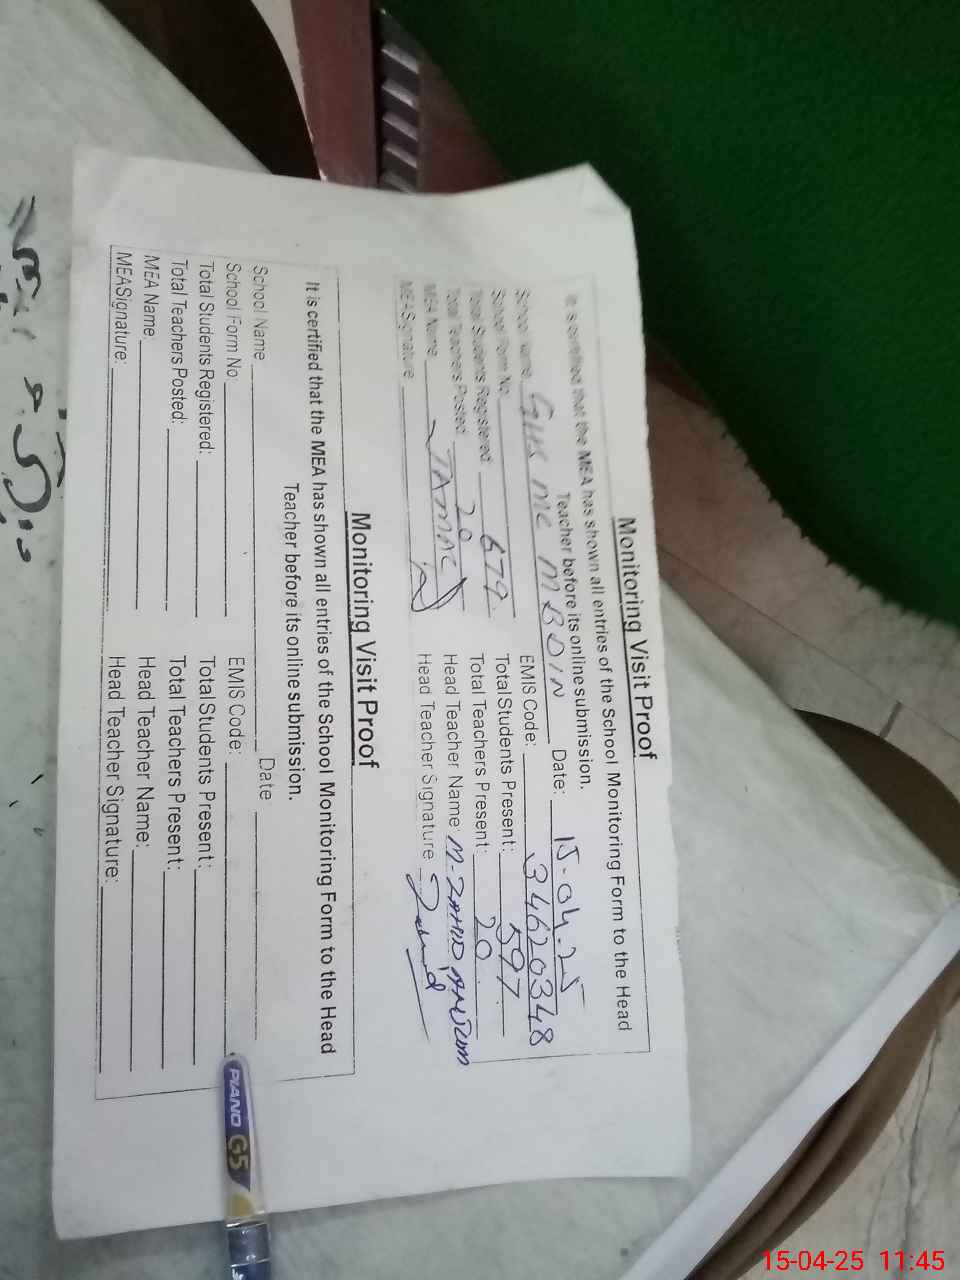 Monitoring Visit Proof
It is certified that the MEA has shown all entries of the School Monitoring Form to the Head
Teacher before its online submission.
School Name GHS MC M B DIN Date: 15-04-25
School Form No. EMIS Code: 34620348
Total Students Registered: 679 Total Students Present: 597
Total Teachers Posted: 20 Total Teachers Present: 20
MEA Name: Head Teacher Name: M-ZAHID ANJUM
MEASignature: Head Teacher Signature:
Monitoring Visit Proof
It is certified that the MEA has shown all entries of the School Monitoring Form to the Head
Teacher before its online submission.
School Name Date
School Form No. EMIS Code:
Total Students Registered: Total Students Present:
Total Teachers Posted: Total Teachers Present:
MEA Name: Head Teacher Name:
MEASignature: Head Teacher Signature:
PIANO G5
15-04-25 11:45